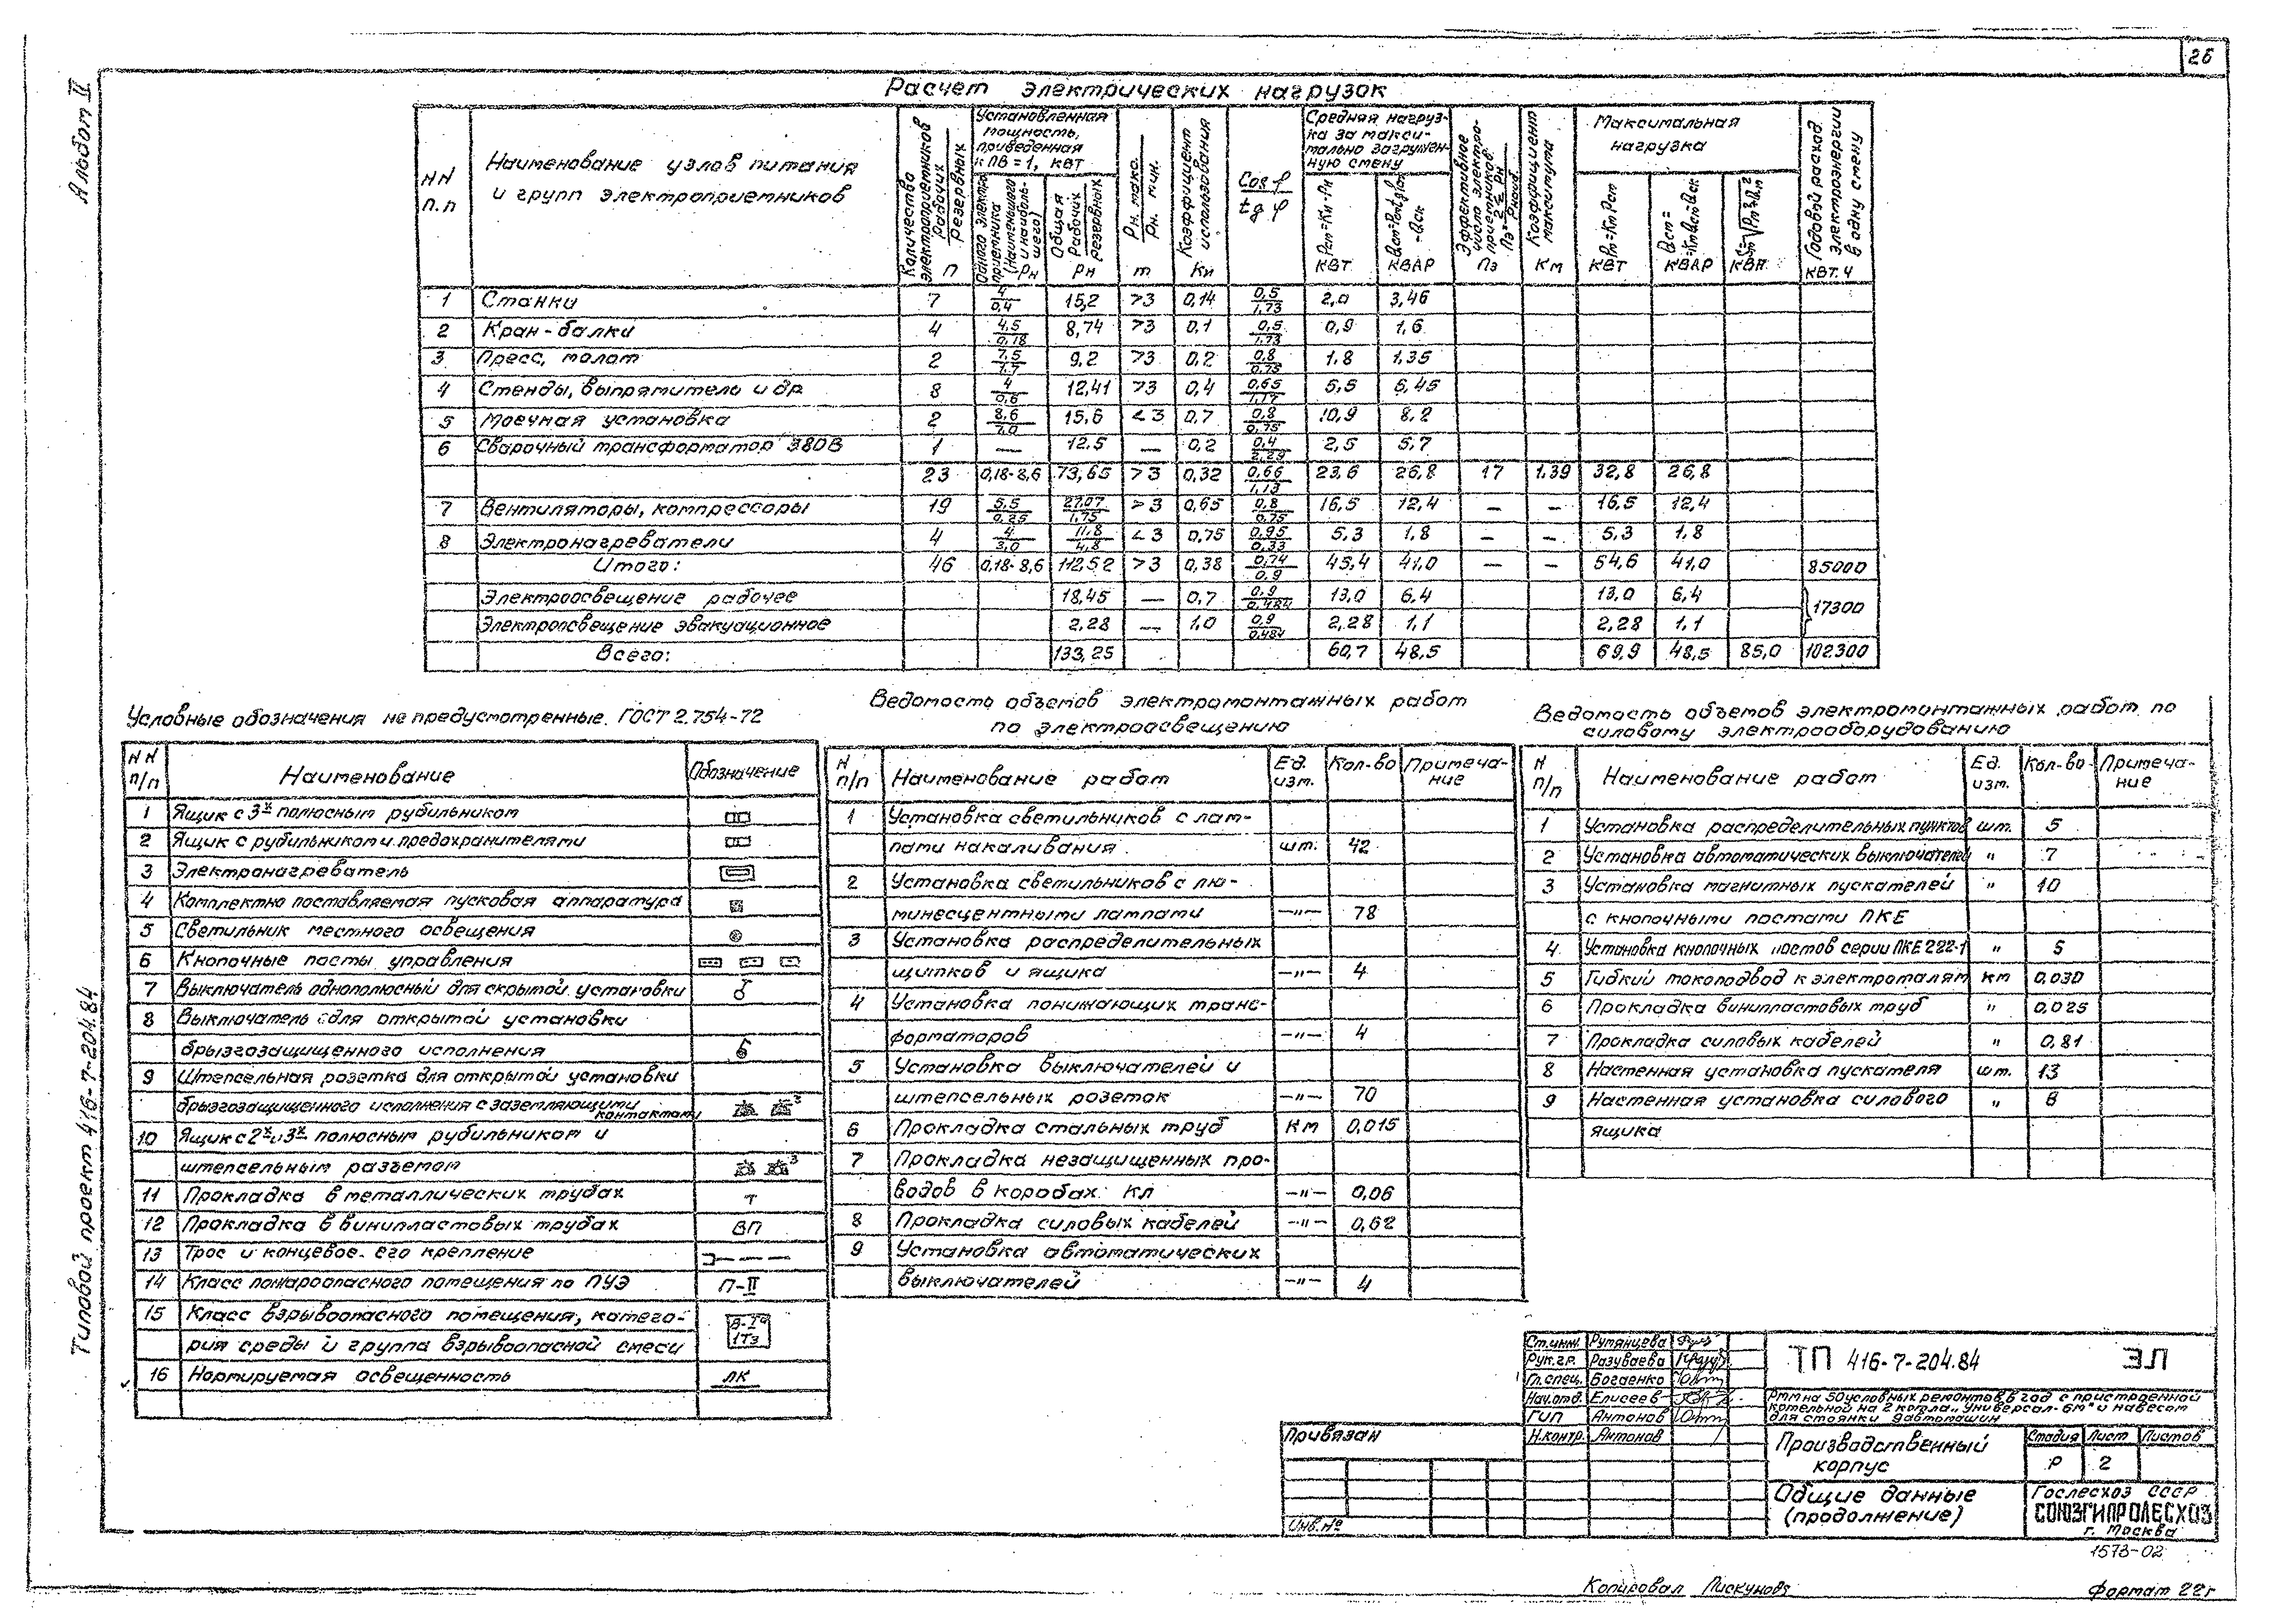 26
Альбом II
Типовой проект 416-7-204.84
Расчет электрических нагрузок
NN п.п
Наименование узлов питания и групп электроприемников
Количество электроприемников Рабочих Резервных n
Установленная мощность, приведенная к ПВ=1, квт
Одного электроприемника (наименьшего и наибольшего) Рн
Общая Рабочих Резервных Рн
Рн. макс. Рн. мин. m
Коэффициент использования Ки
Cos φ tg φ
Средняя нагрузка за максимально загруженную смену
КВТ
КВАР
Эффективное число электроприемников Пэ
Коэффициент максимума Км
Максимальная нагрузка
КВТ
КВАР
КВА
Годовой расход электроэнергии в одну смену КВТ.Ч
1 Станки 7 4/0,4 15,2 >3 0,14 0,5/1,73 2,0 3,46
2 Кран-балки 4 4,5/0,18 8,74 >3 0,1 0,5/1,73 0,9 1,6
3 Пресс, молот 2 7,5/1,7 9,2 >3 0,2 0,8/0,75 1,8 1,35
4 Стенды, выпрямитель и др 8 4/0,6 12,41 >3 0,4 0,65/1,17 5,5 6,45
5 Моечная установка 2 8,6/7,0 15,6 <3 0,7 0,8/0,75 10,9 8,2
6 Сварочный трансформатор 380В 1 — 12.5 — 0,2 0,4/2,29 2,5 5,7
23 0,18-8,6 73,65 >3 0,32 0,66/1,13 23,6 26,8 17 1.39 32,8 26,8
7 Вентиляторы, компрессоры 19 5,5/0,25 27,07/1,75 >3 0,65 0,8/0,75 16,5 12,4 — — 16,5 12,4
8 Электронагреватели 4 4/3,0 11,8/4,8 <3 0,75 0,95/0,33 5,3 1,8 — — 5,3 1,8
Итого: 46 0,18-8,6 112,52 >3 0,38 0,74/0,9 45,4 41,0 — — 54,6 41,0 85000
Электроосвещение рабочее 18,45 — 0,7 0,9/0,484 13,0 6,4 13,0 6,4
17300
Электроосвещение эвакуационное 2,28 — 1,0 0,9/0,484 2,28 1,1 2,28 1,1
Всего: 133,25 60,7 48,5 69,9 48,5 85,0 102300
Условные обозначения не предусмотренные ГОСТ 2.754-72
NN п/п Наименование Обозначение
1 Ящик с 3х полюсным рубильником
2 Ящик с рубильником и предохранителями
3 Электронагреватель
4 Комплектно поставляемая пусковая аппаратура
5 Светильник местного освещения
6 Кнопочные посты управления
7 Выключатель однополюсный для скрытой установки
8 Выключатель для открытой установки
брызгозащищенного исполнения
9 Штепсельная розетка для открытой установки
брызгозащищенного исполнения с заземляющими контактами 3
10 Ящик с 2х и 3х полюсным рубильником и
штепсельным разъемом 3
11 Прокладка в металлических трубах Т
12 Прокладка в винипластовых трубах ВП
13 Трос и концевое его крепление
14 Класс пожароопасного помещения по ПУЭ П-II
15 Класс взрывоопасного помещения, катего- В-Iа
рия среды и группа взрывоопасной смеси 1Т3
16 Нормируемая освещенность ЛК
Ведомость объемов электромонтажных работ
по электроосвещению
N п/п Наименование работ Ед. изм. Кол-во Примечание
1 Установка светильников с лам-
пами накаливания шт. 42
2 Установка светильников с лю-
минесцентными лампами —"— 78
3 Установка распределительных
щитков и ящика —"— 4
4 Установка понижающих транс-
форматоров —"— 4
5 Установка выключателей и
штепсельных розеток —"— 70
6 Прокладка стальных труб Км 0,015
7 Прокладка незащищенных про-
водов в коробах КЛ —"— 0,06
8 Прокладка силовых кабелей —"— 0,62
9 Установка автоматических
выключателей —"— 4
Ведомость объемов электромонтажных работ по
силовому электрооборудованию
N п/п Наименование работ Ед. изм. Кол-во Примечание
1 Установка распределительных пунктов шт. 5
2 Установка автоматических выключателей " 7
3 Установка магнитных пускателей " 10
с кнопочными постами ПКЕ
4 Установка кнопочных постов серии ПКЕ 222-1 " 5
5 Гибкий токоподвод к электроталям км 0,030
6 Прокладка винипластовых труб " 0,025
7 Прокладка силовых кабелей " 0,81
8 Настенная установка пускателя шт. 13
9 Настенная установка силового " 8
ящика
Ст.инж. Румянцева
Рук.гр. Разуваева
Гл.спец. Богаенко
Нач.отд. Елисеев
ГИП Антонов
Н.контр. Антонов
ТП 416-7-204.84 ЭЛ
РММ на 50 условных ремонтов в год с пристроенной
котельной на 2 котла „Универсал-6М" и навесом
для стоянки автомашин
Привязан
Инв.№
Производственный корпус
Стадия Лист Листов
Р 2
Общие данные (продолжение)
Гослесхоз СССР
СОЮЗГИПРОЛЕСХОЗ
г. Москва
1573-02
Копировал Пискунова
Формат 22г